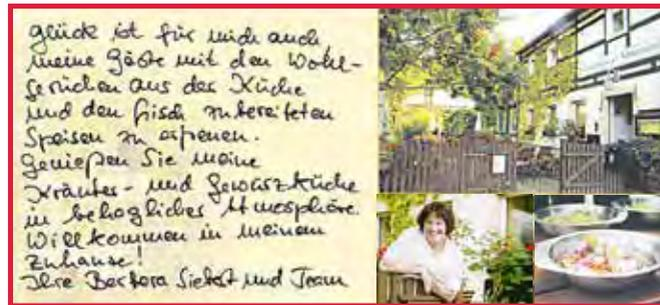 Glück ist für mich auch
meine Gäste mit den Wohl-
gerüchen aus der Küche
und den frisch zubereiteten
Speisen zu erfreuen.
Genießen Sie meine
Kräuter- und Gewürzküche
in behaglicher Atmosphäre.
Willkommen in meinem
Zuhause!
Ihre Barbara und Team